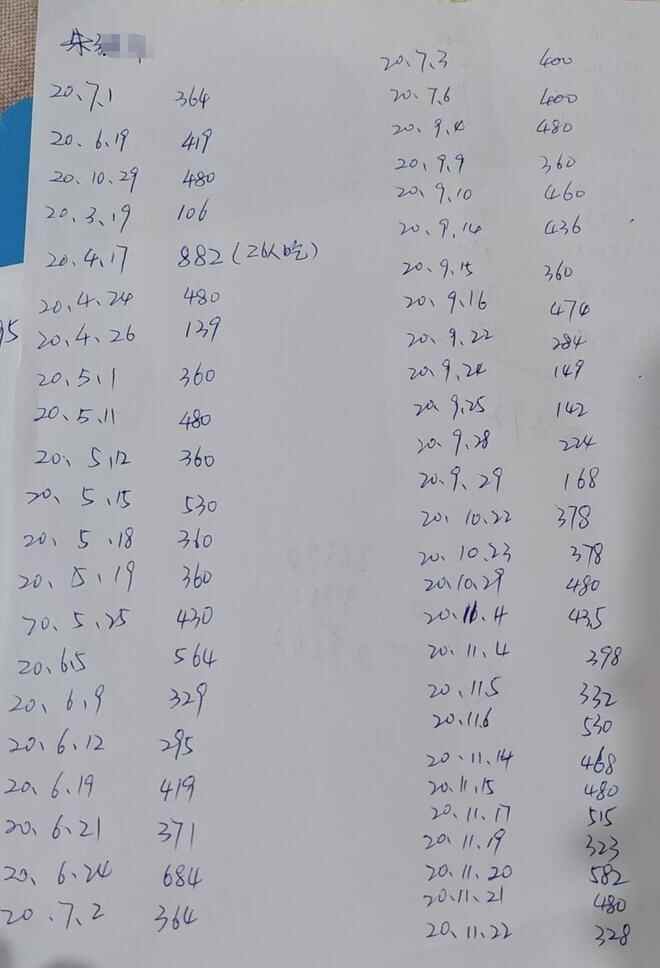 朱
20、7、1 364
20、6、19 419
20、10、29 480
20、3、19 106
20、4、17 882(26人吃)
20、4、24 480
95 20、4、26 139
20、5、1 360
20、5、11 480
20、5、12 360
20、5、15 530
20、5、18 360
20、5、19 360
20、5、25 430
20、6、5 564
20、6、9 329
20、6、12 295
20、6、19 419
20、6、21 371
20、6、24 684
20、7、2 364
20、7、3 400
20、7、6 400
20、9、4 480
20、9、9 360
20、9、10 460
20、9、14 436
20、9、15 360
20、9、16 474
20、9、22 284
20、9、24 149
20、9、25 142
20、9、28 224
20、9、29 168
20、10、22 378
20、10、23 378
20、10、29 480
20、11、4 435
20、11、4 398
20、11、5 332
20、11、6 530
20、11、14 468
20、11、15 480
20、11、17 515
20、11、19 323
20、11、20 582
20、11、21 480
20、11、22 328